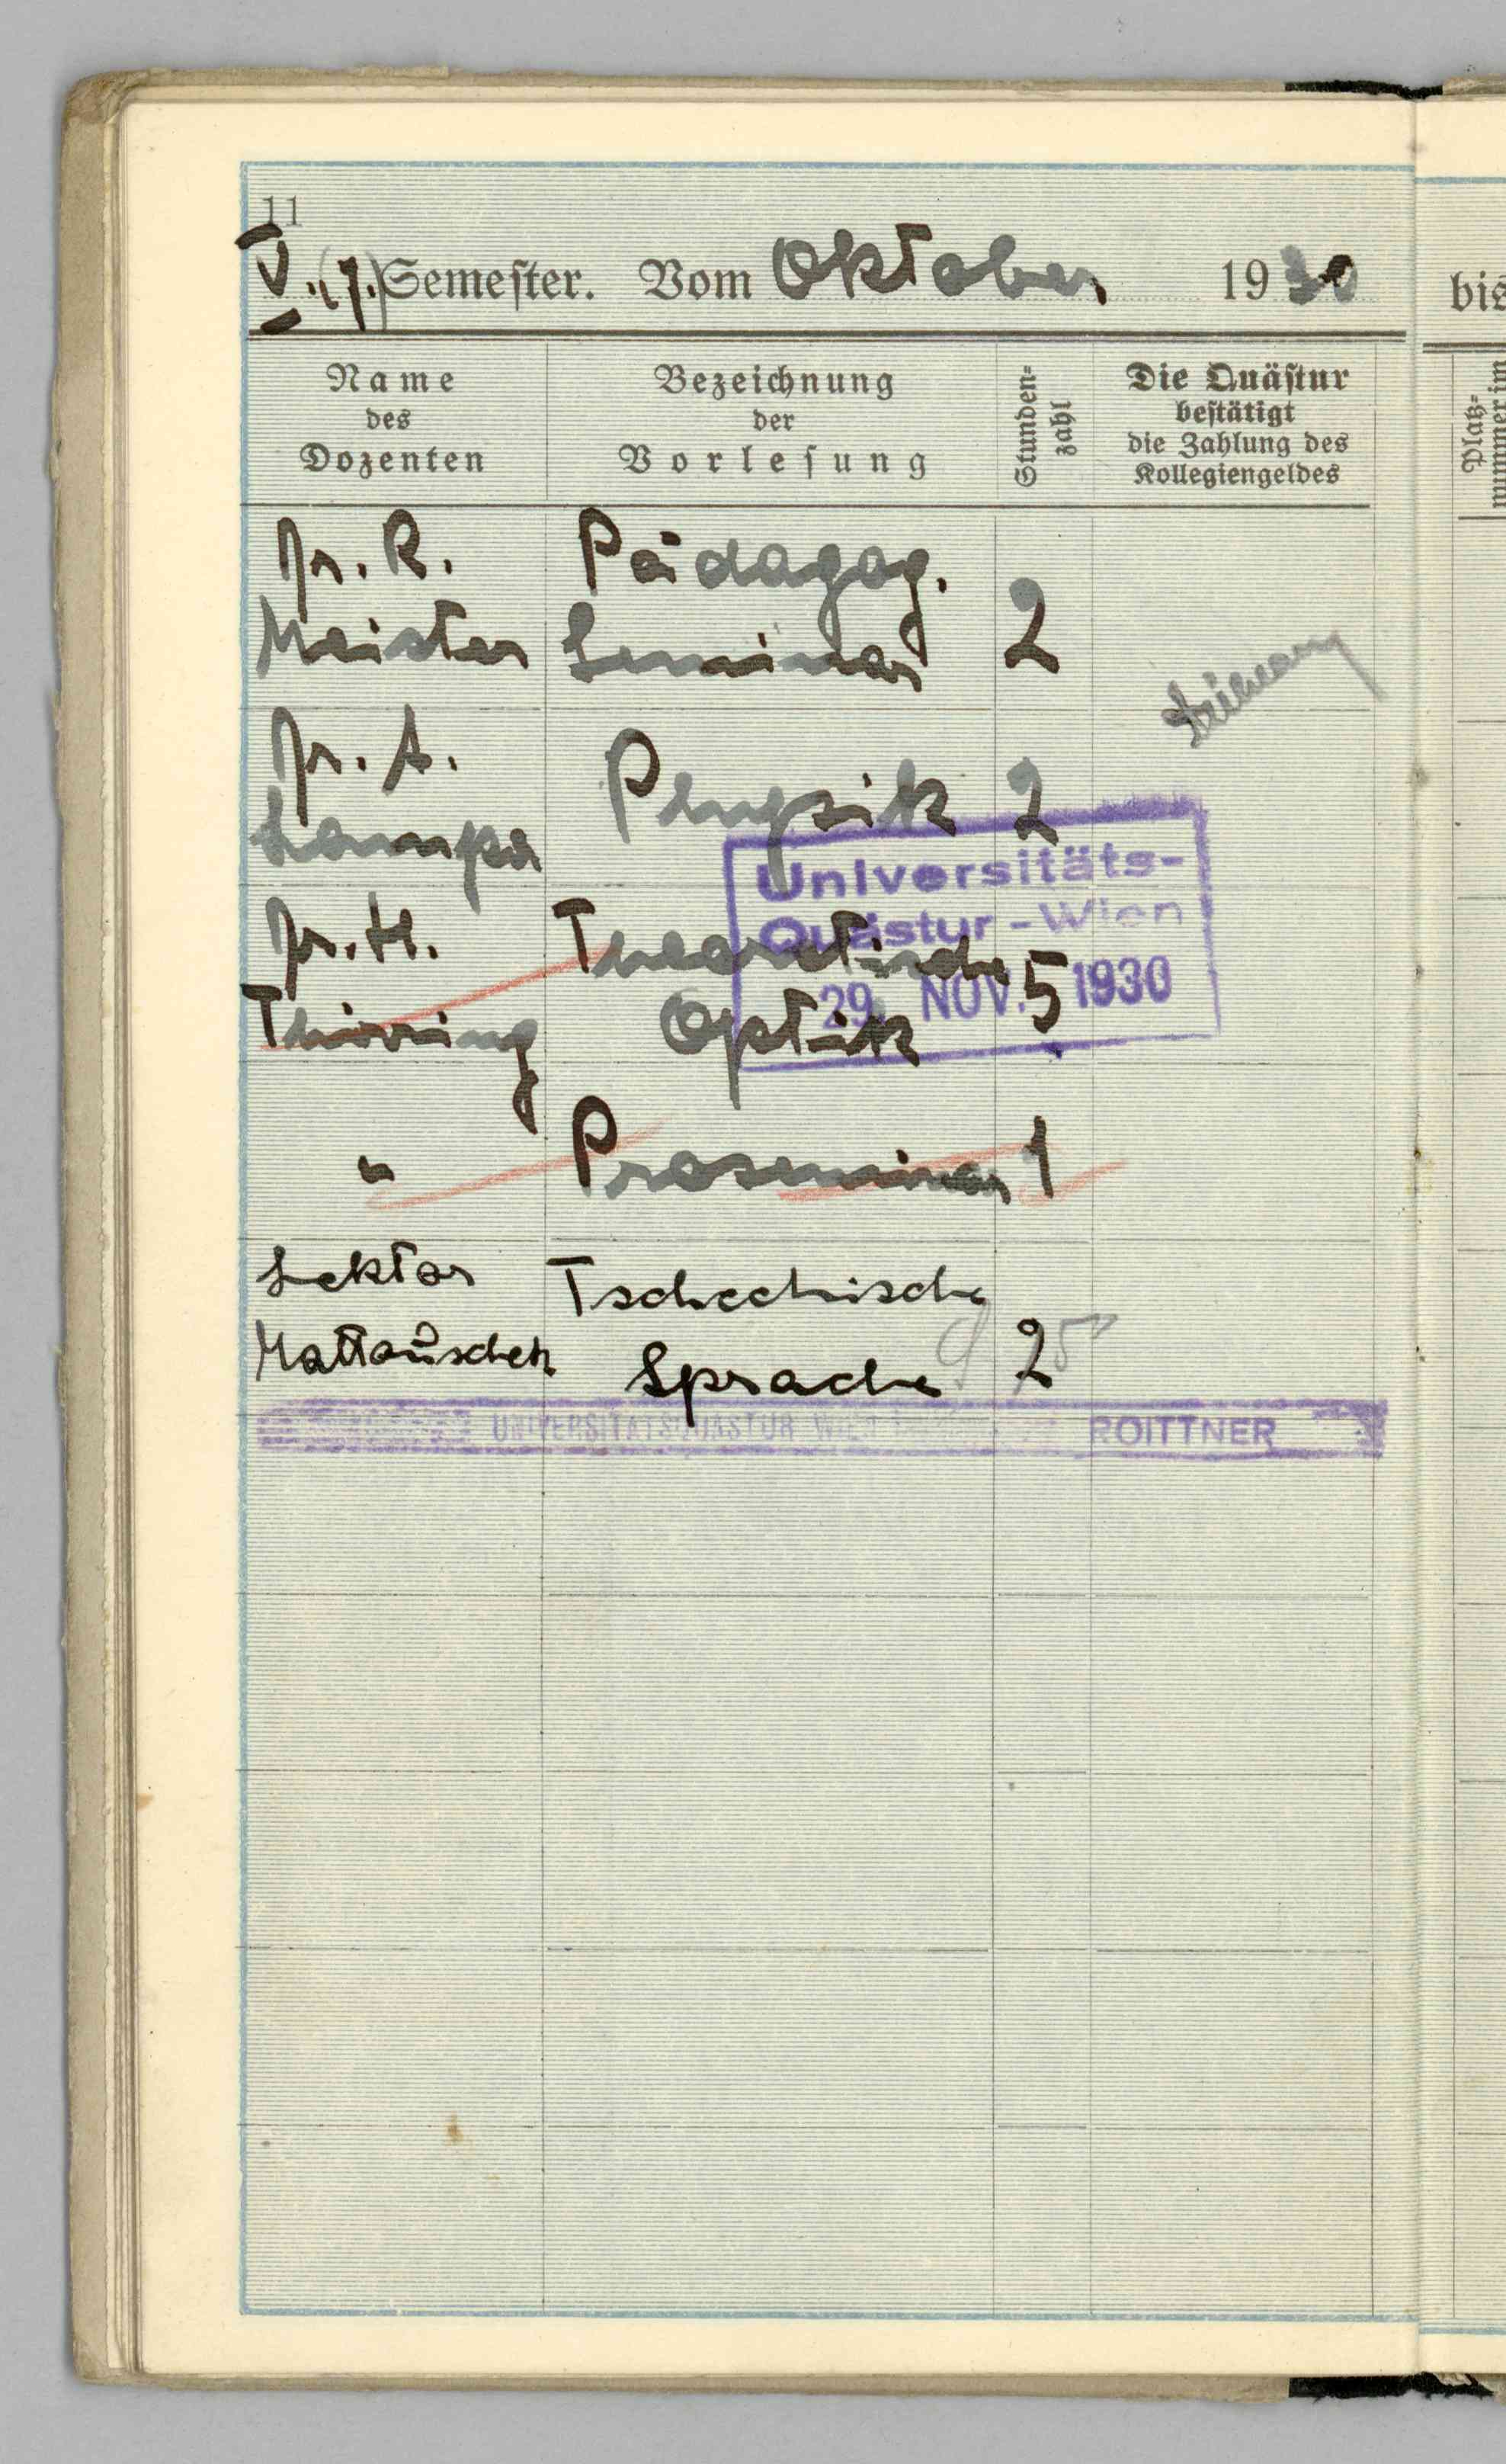 11
V. (7.) Semester. Vom Oktober 1930
bis
Name
des
Dozenten
Bezeichnung
der
Vorlesung
Stunden-
zahl
Die Quästur
bestätigt
die Zahlung des
Kollegiengeldes
Platz-
nummer im
Dr. R. Pädagog.
Meister Seminar 2
Dr. A.
Lampa Physik 2
Universitäts-
Quästur - Wien
29. NOV. 1930
Dr. H. Theoretische
Thirring Optik 5
" Proseminar 1
Lektor Tschechische
Mattauschek Sprache 2
UNIVERSITÄTSQUÄSTUR WIEN ROITTNER